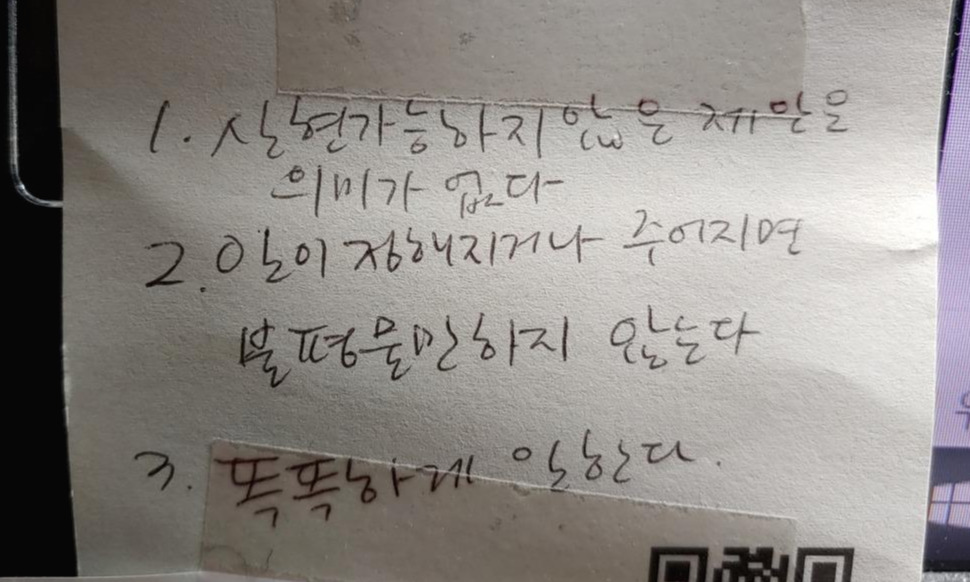 1. 실현가능하지 않은 제안은
의미가 없다
2. 일이 정해지거나 주어지면
불평불만하지 않는다
3. 똑똑하게 일한다.